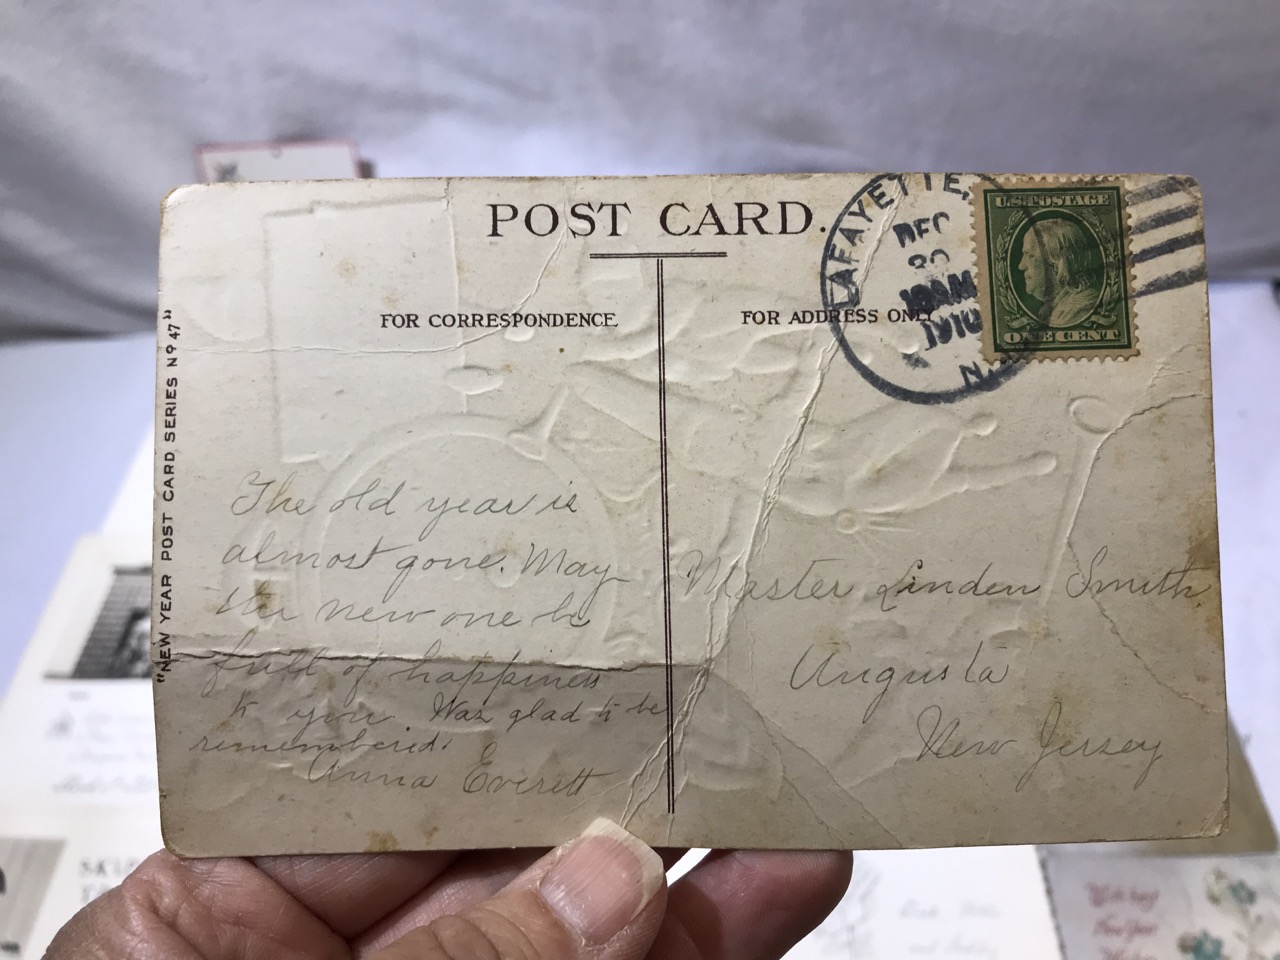 POST CARD.
FOR CORRESPONDENCE.
FOR ADDRESS ONLY.
"NEW YEAR POST CARD SERIES No 47"
LAFAYETTE,
DEC
30
10AM
1910
N.
U.S. POSTAGE
ONE CENT
The old year is
almost gone. May
the new one be
full of happiness
to you. Was glad to be
remembered.
Anna Everett
Master Linden Smith
Augusta
New Jersey